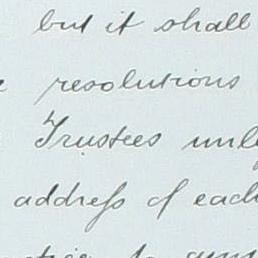 but it shall
resolutions
Trustees
address of each